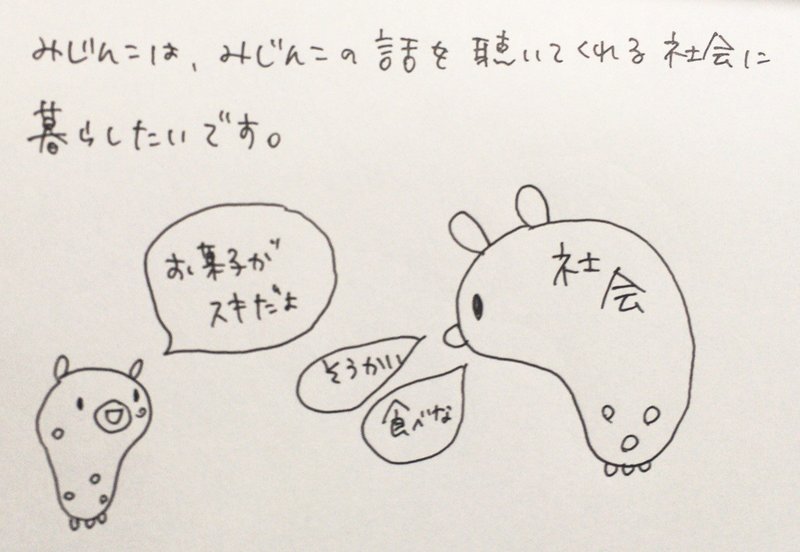 みじんこは、みじんこの話を聴いてくれる社会に
暮らしたいです。
お菓子が
スキだよ
社
会
そうかい
食べな